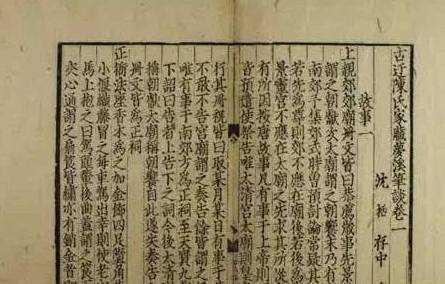 古迂陳氏家藏夢溪筆談卷一
沈括存中
故事一
上親郊郊廟冊文皆曰恭薦歲事先景
謂之朝獻次太廟謂之朝饗末乃有
南郊予集郊式時曾預討論常疑其
若先為尊則郊不應在廟後若後為
景靈宮不應在太廟之先求其所從
有所因按唐故事凡有事于上帝則
皆預遣使祭告唯太清宮太廟則皇
行其冊祝皆曰取某月某日有事于
不敢不告宮廟謂之奏告餘皆謂之
唯有事于南郊方為正祠至天寶九
下詔曰告者上告下之詞今後太清
稱朝獻太廟稱朝饗自此遂失奏告
冊文皆為正祠
正衙法座香木為之加金飾四足墮角
小偃織藤冒之每車駕出幸則使老
馬上抱之曰駕頭輦後曲蓋謂之筤
夾心通謂之扇筤皆繡亦有銷金者